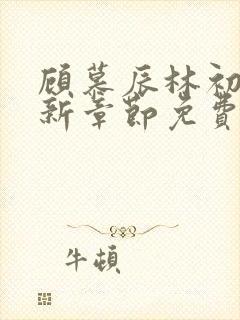 顾慕辰林初
新章节免费
牛顿